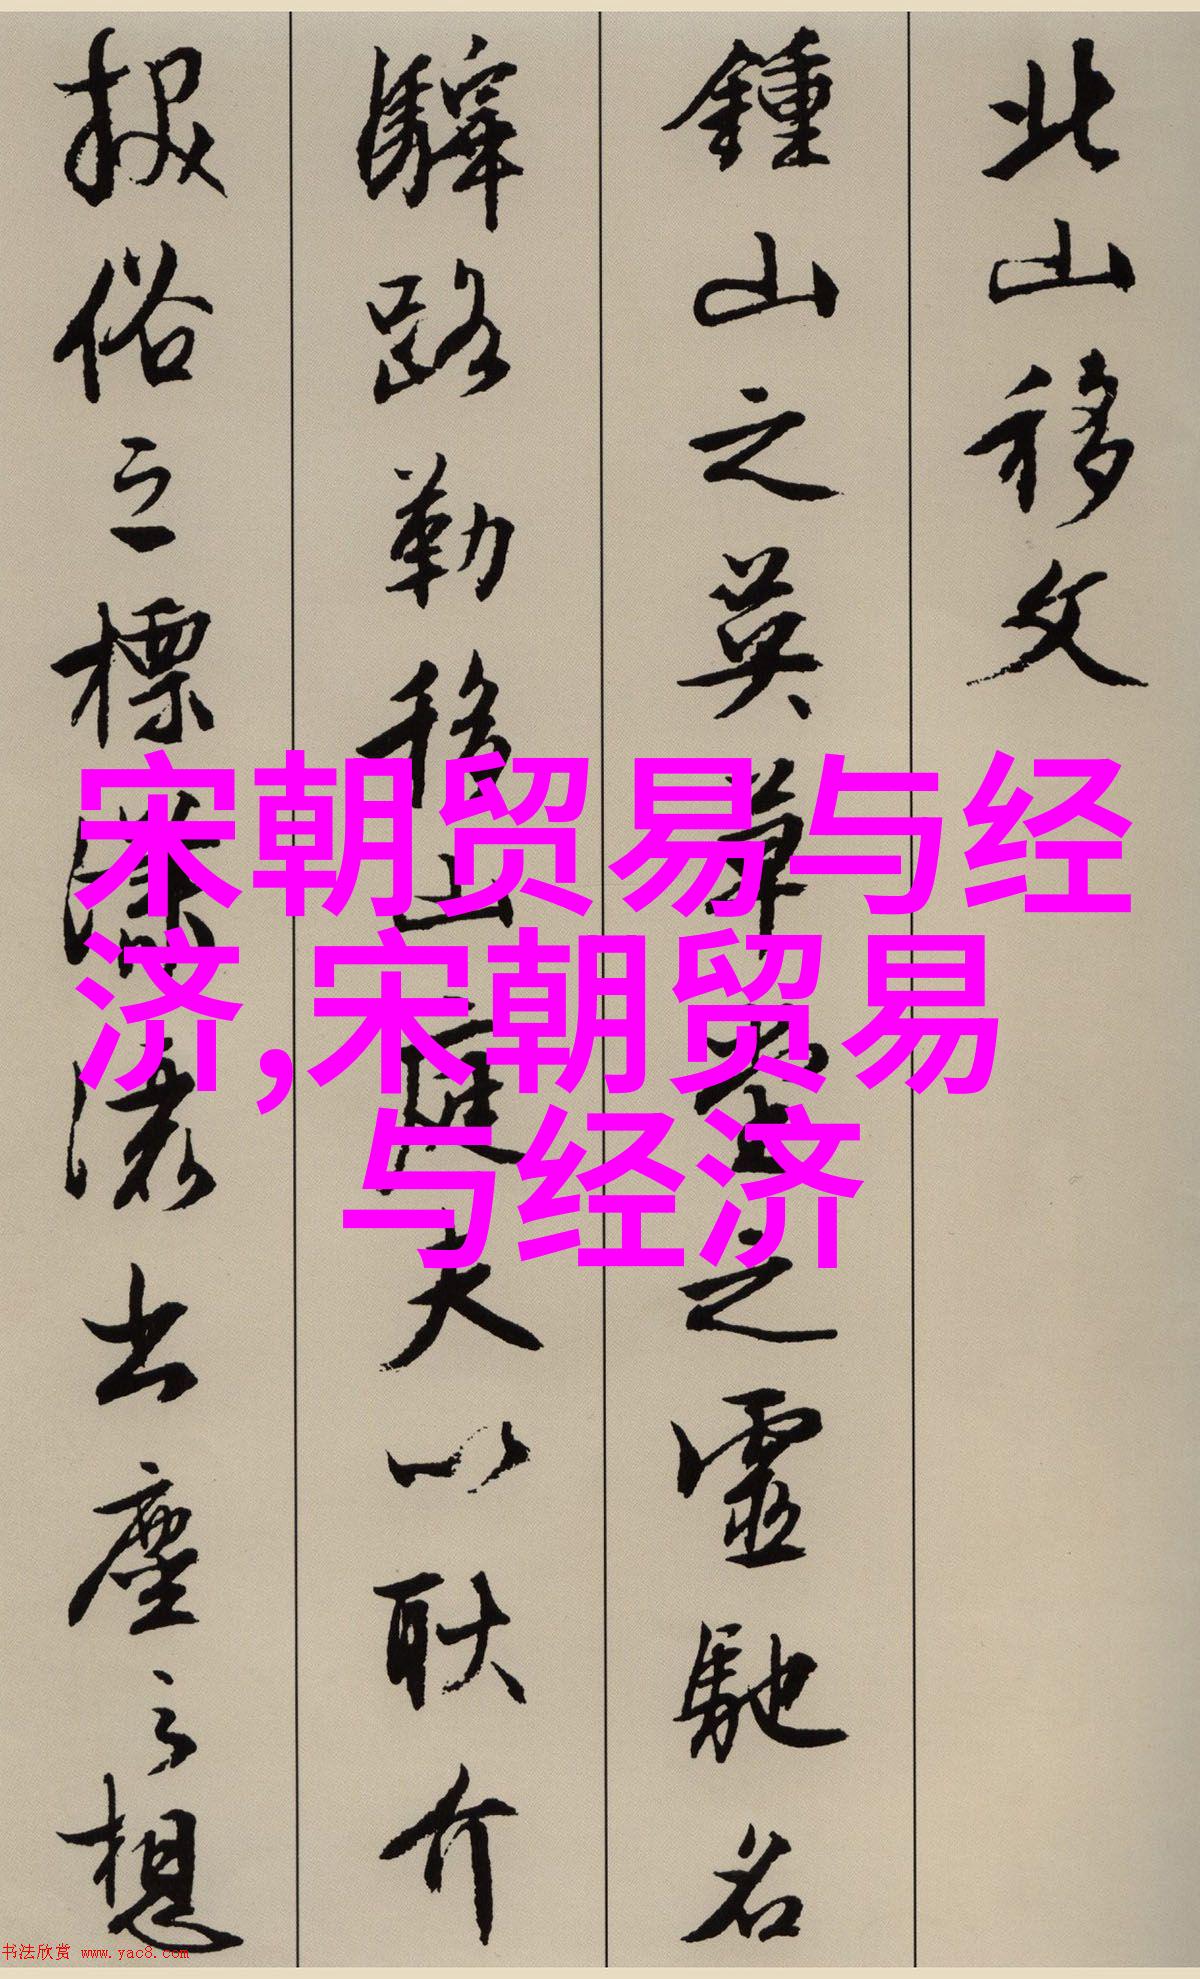 北山移文
鍾山之英草堂之靈馳名
驛路勒移山庭夫以耿介
拔俗之標瀟灑出塵之想
宋朝贸易与经
济,宋朝贸易
与经济
书法欣赏 www.yac8.com